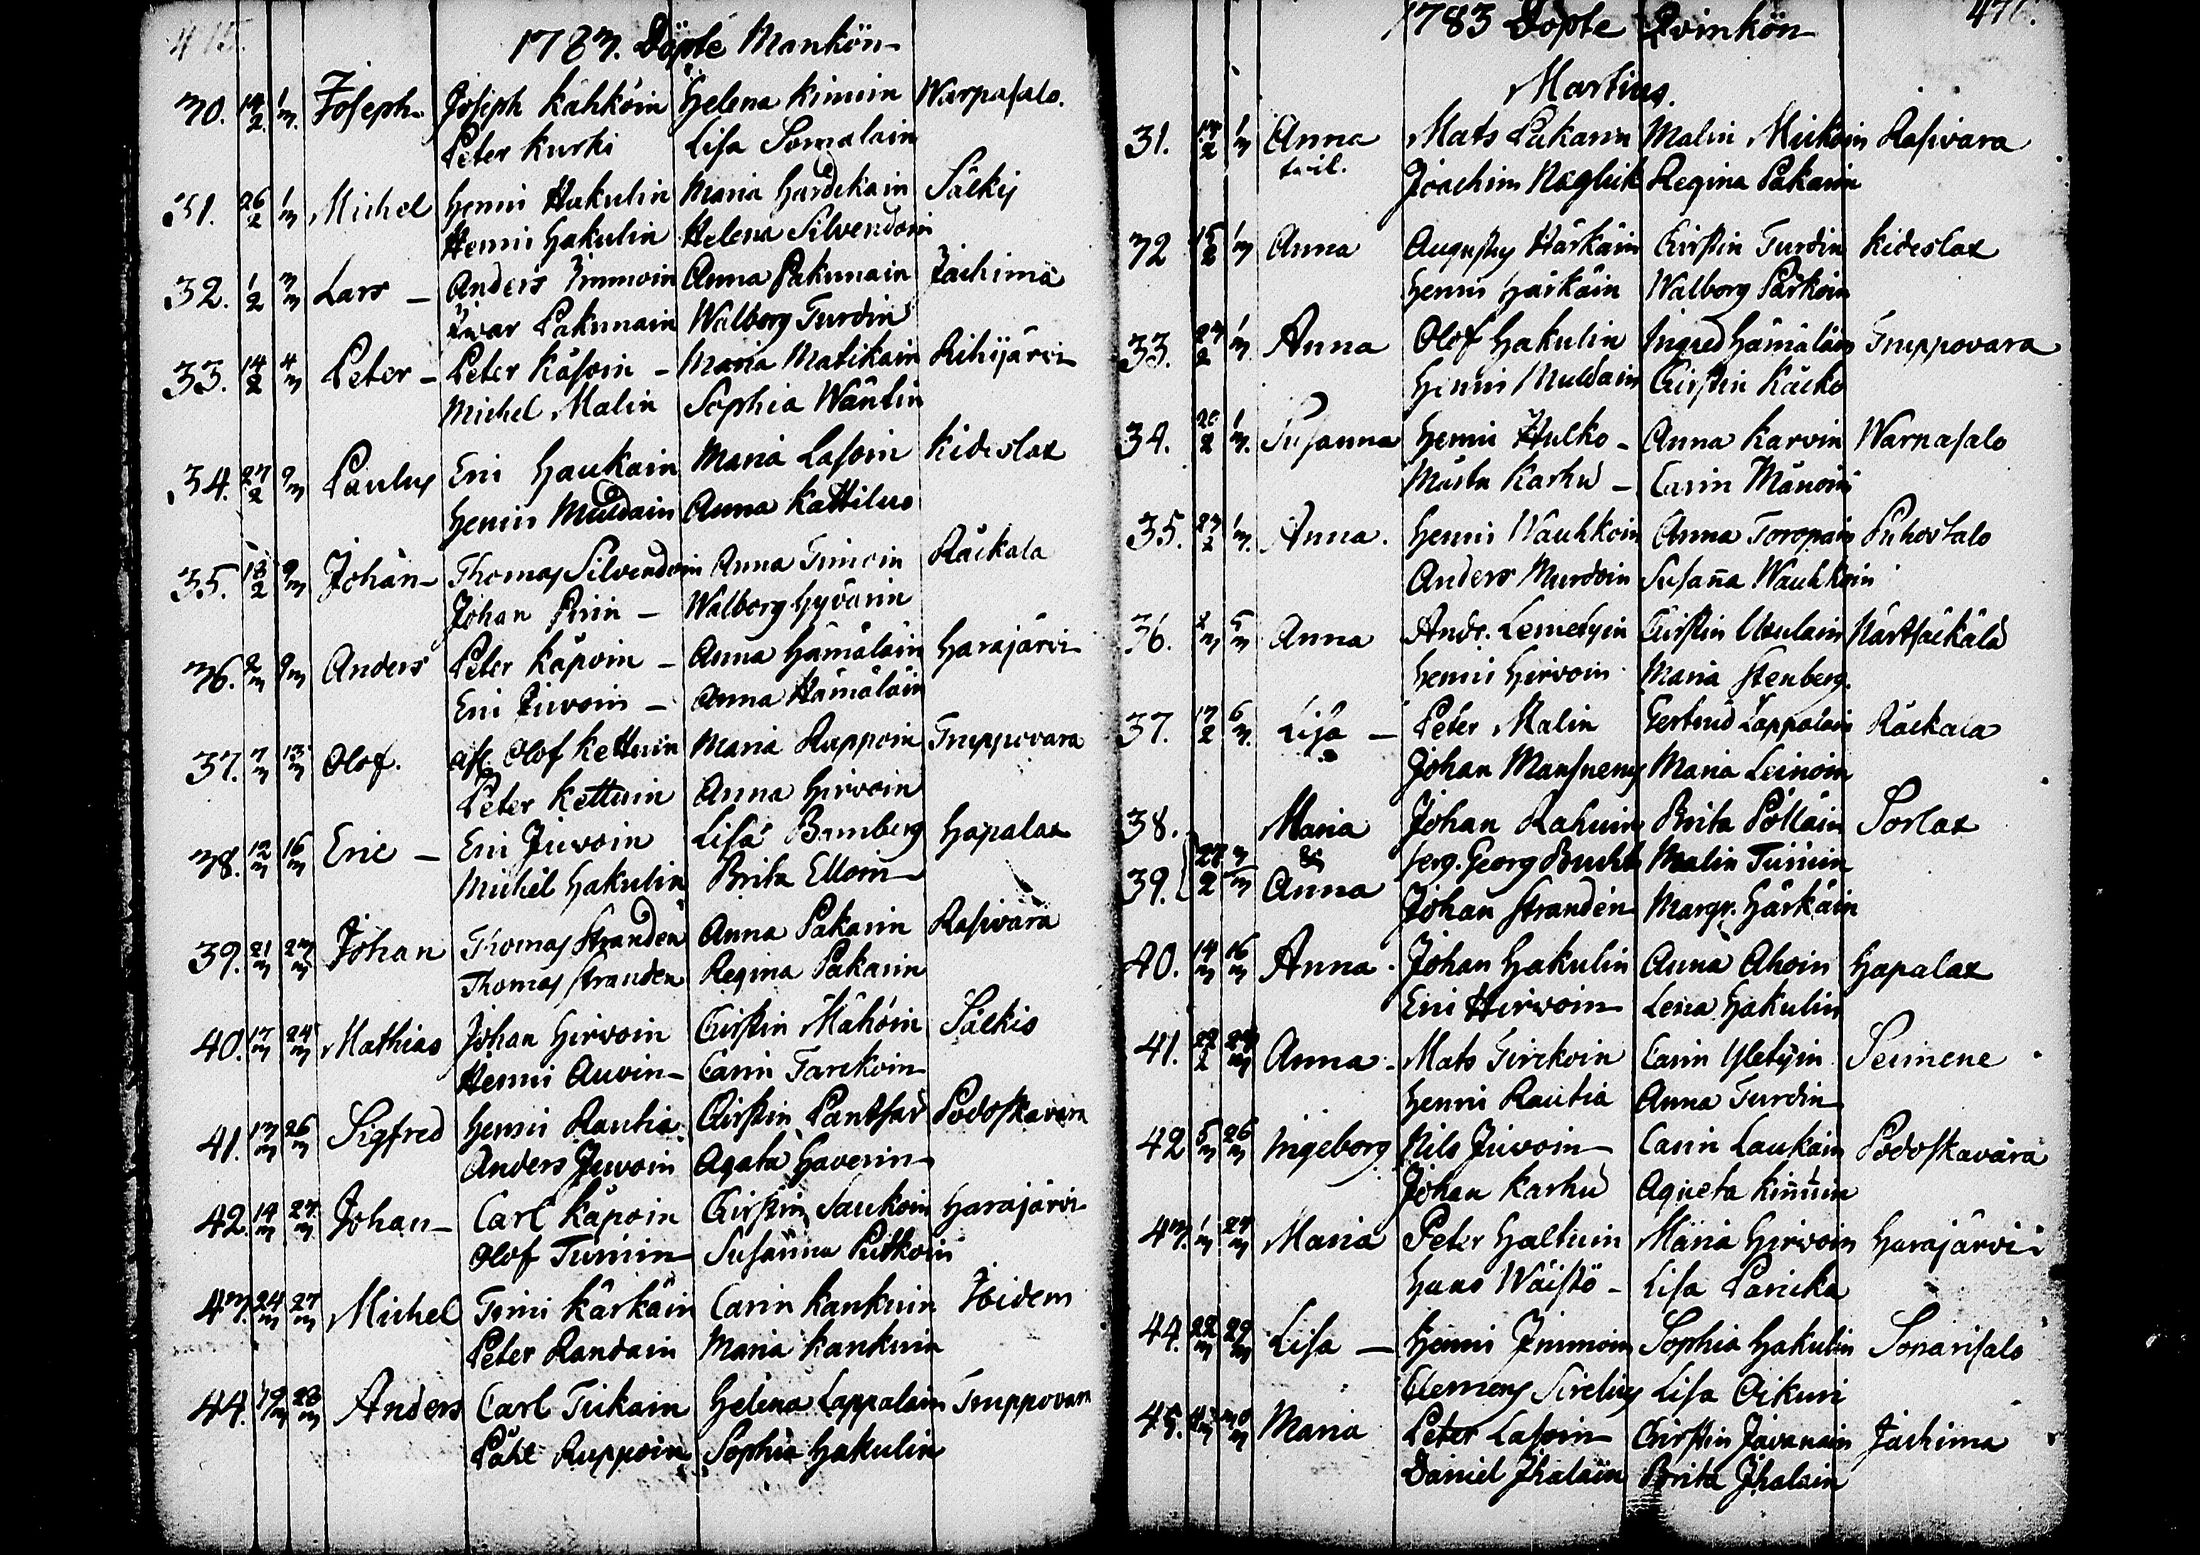 1783. Döpte Mankön
30. 14/2 1/m Joseph Joseph Kåhkoin Helena Kinnin Warpasalo.
Peter Kurki Lisa Somalain
31. 26/2 1/m Michel Henric Hakulin Maria Hardikain Sälkis
Henric Hakulin Helena Silvendoin
32. 1/2 3/m Lars – Anders Immoin Anna Pakunain Jachima
Iwar Pakunain Walborg Turdin
33. 14/2 4/m Peter – Peter Käsoin – Maria Matikain Rihijärvi
Michel Malin Sophia Wäntin
34. 27/2 9/m Paulus Eric Haukain Maria Lasoin Kideslax
Henric Muldain Anna Kattilus
35. 18/2 9/m Johan – Thomas Silvendoin Anna Timoin Räckala
Johan Piiri – Walborg Hyvärin
36. 2/m 9/m Anders Peter Käpoin – Anna Hämäläin Harajärvi
Eric Juvoin – Anna Hämäläin
37. 7/m 13/m Olof. afl. Olof Kettuin Maria Ruppoin Truppovara
Peter Kettuin Anna Hirvoin
38. 12/m 16/m Eric – Eric Juvoin Lisa Bamberg Hapalax
Michel Hakulin Brita Elloin
39. 21/m 23/m Johan Thomas Stranden Anna Pakarin Rasivara
Thomas Stranden Regina Pakarin
40. 17/m 24/m Mathias Johan Hirvoin Chirstin Mähöin Sälkis
Henric Auvin – Carin Tarckoin
41. 13/m 26/m Sigfred Henric Rautia Chirstin Pantsar Podoskavara
Anders Juvoin Agata Haverin
42. 14/m 27/m Johan – Carl Käpoin Chirstin Saukoin Harajärvi
Olof Turuin Susanna Putkoin
43. 24/m 27/m Michel Timi Kärkäin Carin Kankuin Ibidem
Peter Randain Maria Kankuin
44. 19/m 28/m Anders Carl Tiikain Helena Lappalain Truppovara
Påhl Ruppoin Sophia Hakulin
1783 Döpte Qvinkön 476.
Martius.
31. 1/m Anna Mats Pakarin Malin Mickoin Rasivara
Joachim Neglick Regina Pakarin
32 15/2 1/m Anna Augustus Härkäin Chirstin Turdin Kideslax
Henric Härkäin Walborg Pärkoin
33. 23/2 1/m Anna Olof Hakulin Ingred Hämäläin Truppovara
Henric Muldain Chirstin Käcko
34. 20/2 1/m. Susanna Henric Hulko – Anna Karvin Warpasalo
Mårten Karhu – Carin Mänoin
35. 23/2 1/m. Anna. Henric Wauhkoin Anna Toropain Puhostalo
Anders Murdoin Susaña Wauhkoin
36. 2/m 5/m Anna Andr. Lemetyin Chirstin Uculain Närtsäckälä
Henric Hirvoin Maria Stenberg.
37. 17/2 6/m. Lisa – Peter Malin Gertrud Lappalain Räckala
Johan Mansnerus Maria Leinoin
38. Maria Johan Rahuin Brita Pöllain Sorlax
& serg. Georg Bucht Malin Turuin
39. 28/2 Anna Johan Stranden Margr. Härkäin
40. 14/m 16/m Anna. Johan Hakulin Anna Ahoin Hapalax
Eric Hirvoin Lena Hakulin
41. 22/2 24/m Anna. Mats Tirckoin Carin Yletyin Seimene
Henric Rautia Anna Turdin
42 5/m 26/m Ingeborg Nils Juvoin – Carin Laukain Podoskavara
Johan Karhu Agneta Kinnuin
43. 1/m 27/m Maria Peter Haltuin Maria Hirvoin Harajärvi
Hans Wäistö – Lisa Paricka
44. 22/m 29/m Lisa – Henric Immoin Sophia Hakulin Sonarisalo
Clemens Sirelius Lisa Oikuri
45. 30/m Maria Peter Lasoin Chirstin Javanain Jachima
Daniel Ihalain Brita Ihalain